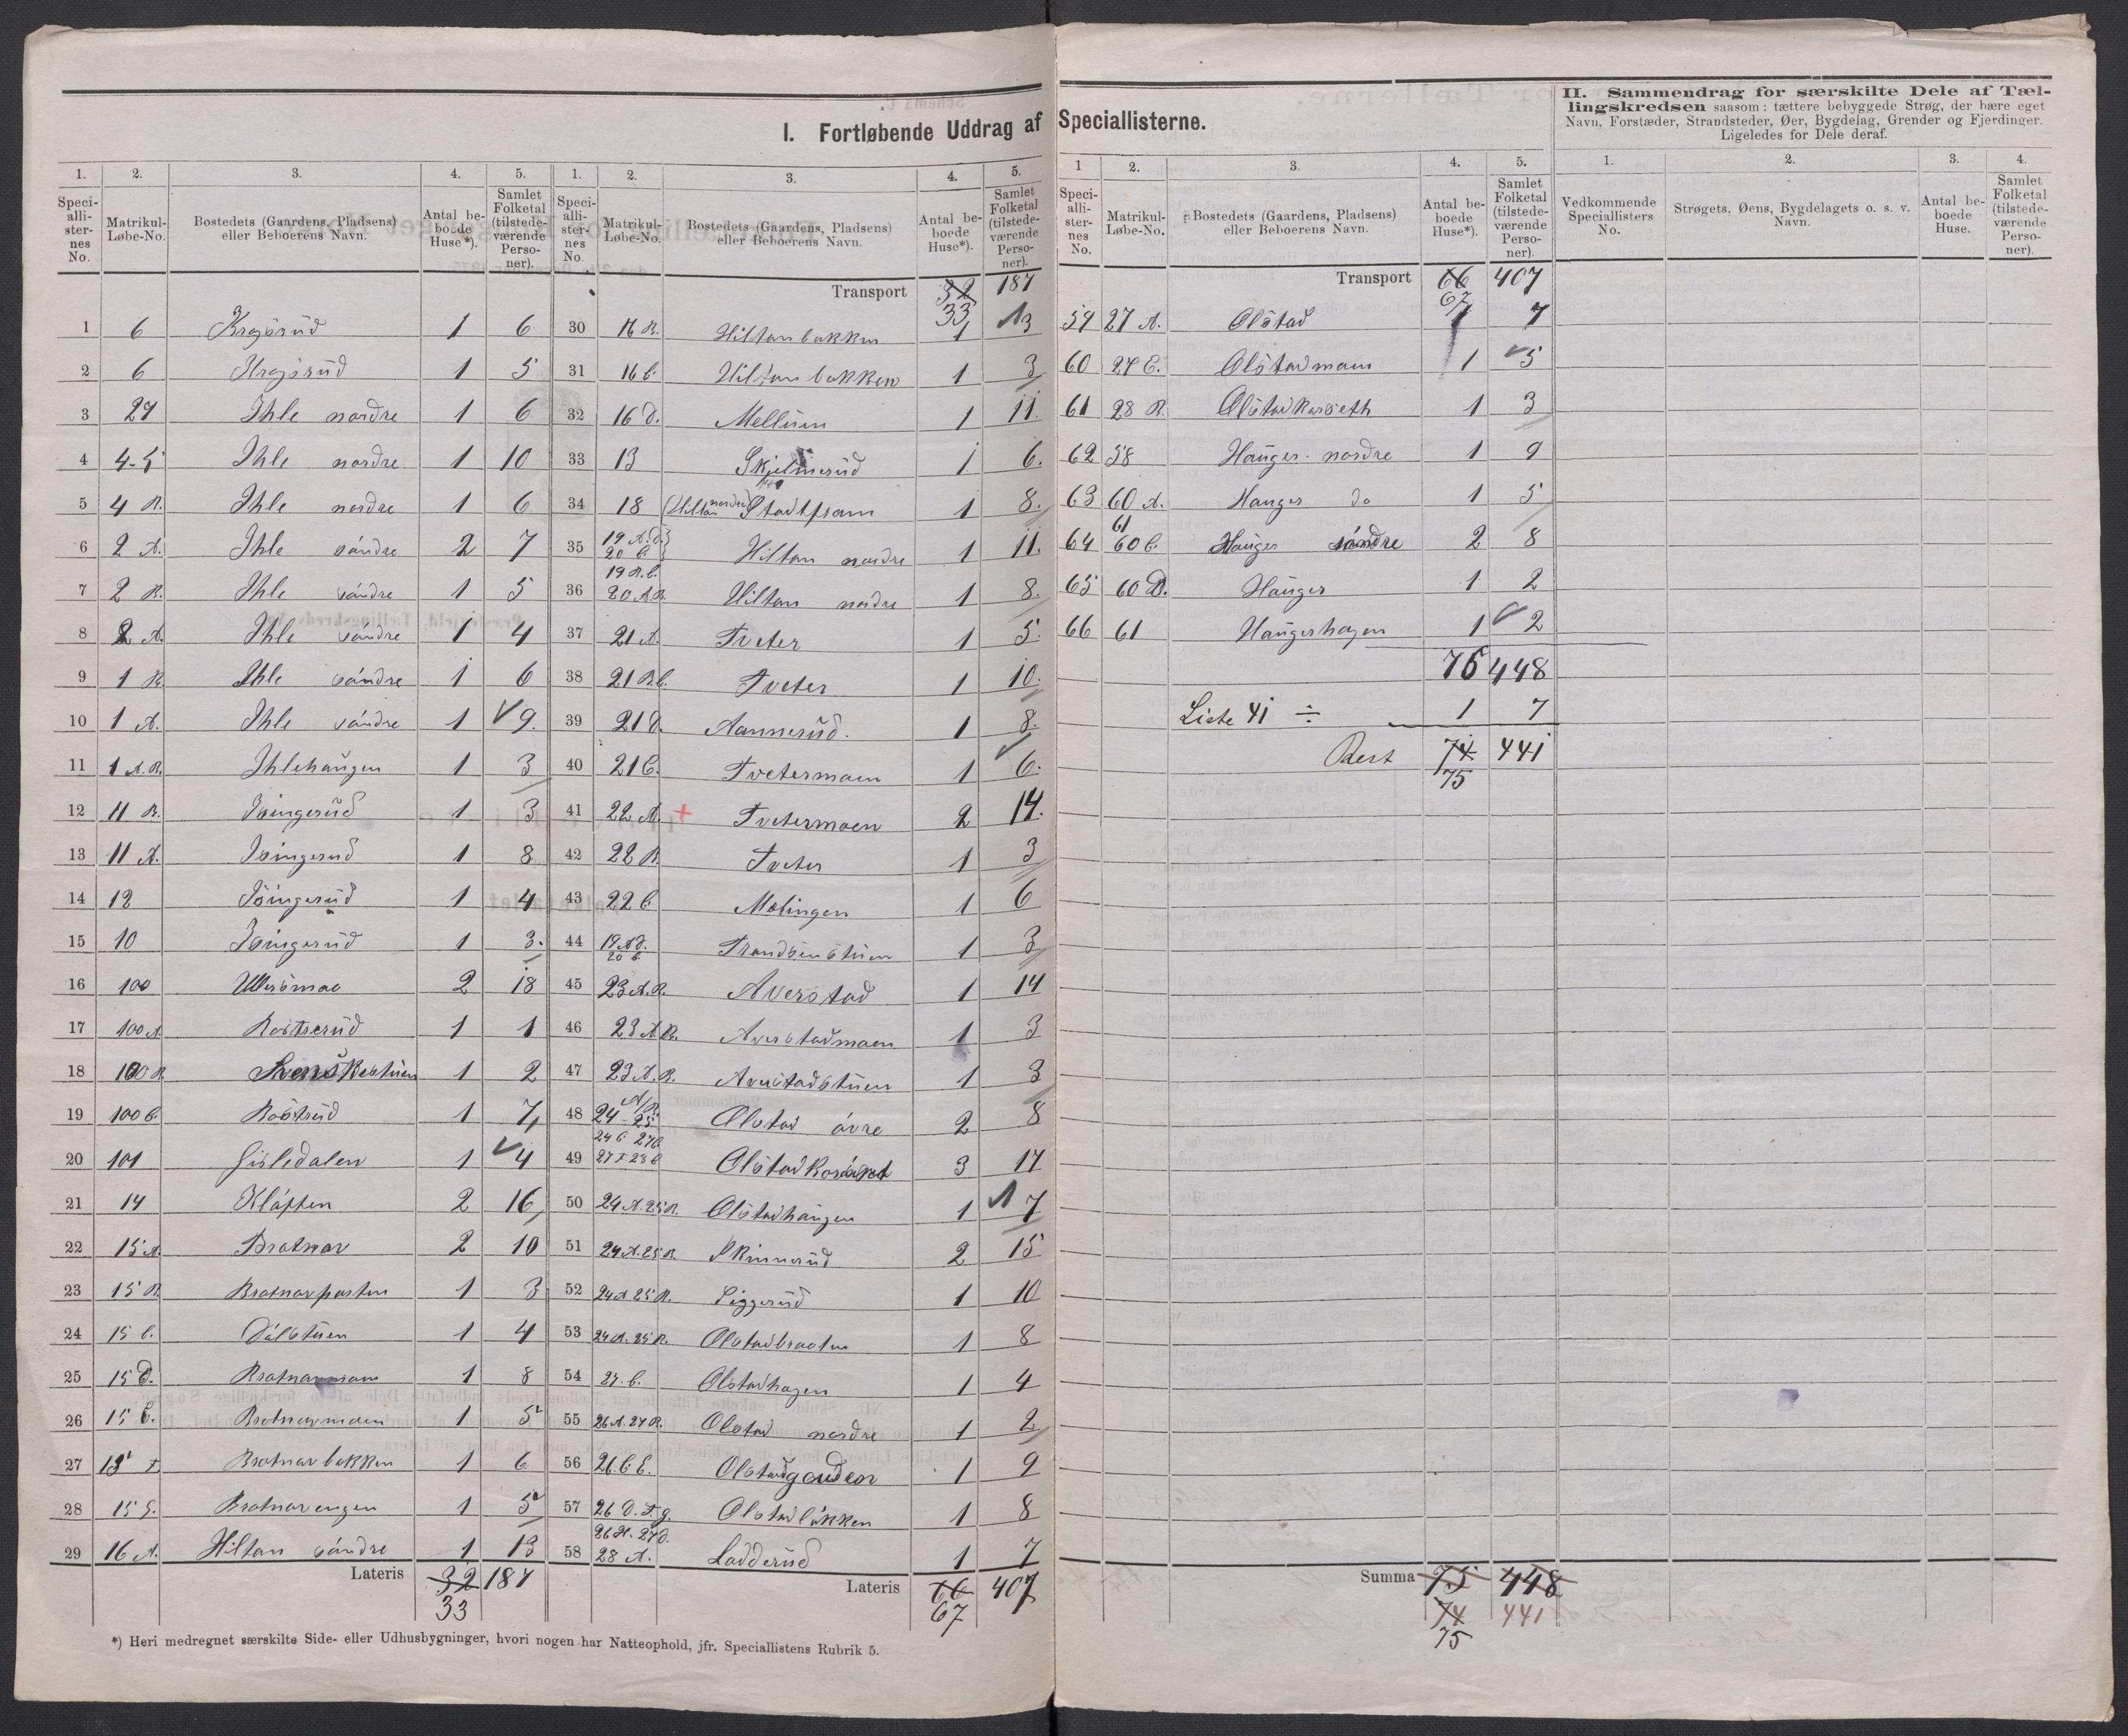 I. Fortløbende Uddrag af Speciallisterne.
II. Sammendrag for særskilte Dele af Tæl-
lingskredsen saasom: tættere bebyggede Strøg, der bære eget
Navn, Forstæder, Strandsteder, Øer, Bygdelag, Grender og Fjerdinger.
Ligeledes for Dele deraf.
1. 2. 3. 4. 5.
Speci-alli-ster-nes No. Matrikul-Løbe-No. Bostedets (Gaardens, Pladsens) eller Beboerens Navn. Antal be-boede Huse*). Samlet Folketal (tilstede-værende Perso-ner).
1 6 6
2 6 1 5
3 27 Ihle nordre 1 6
4 4-5 Ihle nordre 1 10
5 4 B. Ihle nordre 1 6
6 2 A. Ihle søndre 2 7
7 2 B. Ihle søndre 1 5
8 2 A. Ihle søndre 1 4
9 1 B. Ihle søndre 1 6
10 1 A. Ihle søndre 1 9.
11 1 A.B. Ihlehaugen 1 3
12 11 B. Isingerud 1 3
13 11 A. Isingerud 1 8
14 12 Isingerud 1 4
15 10 Isingerud 1 3.
16 100 Ullersmao 2 18
17 100 A 1 1
18 100 B Svenskestuen 1 2
19 100 C. Rostrud 1 7
20 101 Gisledalen 1 4
21 14 Kløften 2 16
22 15 A. Bratnar 2 10
23 15 B Bratnarporten 1 3
24 15 C. Dalstuen 1 4
25 15 D. Bratnarmoen 1 8
26 15 E. Bratnarmoen 1 5
27 15 F. Bratnarbakken 1 6
28 15 G. Bratnarengen 1 5
29 16 A. Hilton søndre 1 13
Lateris 32 187
33
1. 2. 3. 4. 5.
Speci-alli-ster-nes No. Matrikul-Løbe-No. Bostedets (Gaardens, Pladsens) eller Beboerens Navn. Antal be-boede Huse*). Samlet Folketal (tilstede-værende Perso-ner).
Transport 32 187
33
30 16 B. Hiltonbakken 1 3
31 16 C. Hiltonbakken 1 3
32 16 D. Mellum 1 11.
33 13 Skjelmerud 1 6.
34 18 (Hilton nordre) 1 8.
35 19 A.D. 20 C. Hilton nordre 1 11.
36 19 B.C. 20 A.B. Hilton nordre 1 8.
37 21 A. Tveter 1 5.
38 21 B.C. Tveter 1 10.
39 21 D. Aannerud. 1 8.
40 21 E. Tvetermoen 1 6.
41 22 A. + Tvetermoen 2 14.
42 22 B. Tveter 1 3
43 22 C. Molingen 1 6
44 19 A.D. 20 C. Trondsenstuen 1 3
45 23 A.B. Averstad 1 14
46 23 A.B. Averstadmoen 1 3
47 23 A.B. Averstadstuen 1 3
48 24 A/B. - 25 Olstad øvre 2 8
49 24 C. 27 F 28 C 3 17
50 24 A. 25 B. Olstadhaugen 1 7
51 24 A. 25 B. Skinnerud 2 15
52 24 A 25 B. Siggerud 1 10
53 24 A. 25 B. Olstadbraaten 1 8
54 27. C. Olstadhagen 1 4
55 26 A. 27 B. Olstad nordre 1 2
56 26. C. E. 1 9
57 26 D. F. G. Olstadløkken 1 8
58 26 H. 27 D. 28 A. Ladderud 1 7
Lateris 66 407
67
*) Heri medregnet særskilte Side- eller Udhusbygninger, hvori nogen har Natteophold, jfr. Speciallistens Rubrik 5.
1 2. 3. 4. 5.
Speci-alli-ster-nes No. Matrikul-Løbe-No. Bostedets (Gaardens, Pladsens) eller Beboerens Navn. Antal be-boede Huse*). Samlet Folketal (tilstede-værende Perso-ner).
Transport 66 407
67
59 27 A. Olstad 1 7
60 27 E. Olstadmoen 1 5
61 28 B. Olstadkorseth 1 3
62 58 Hauger nordre 1 9
63 60 A. Hauger do 1 5
64 61 60 C. Hauger søndre 2 8
65 60 D. Hauger 1 2
66 61 Haugerhagen 1 2
75 448
Liste 41 ÷ 1 7
Rest 74 441
75
Summa 75 448
74 441
75
1. 2. 3. 4.
Vedkommende Speciallisters No. Strøgets, Øens, Bygdelagets o. s. v. Navn. Antal be-boede Huse. Samlet Folketal (tilstede-værende Perso-ner).